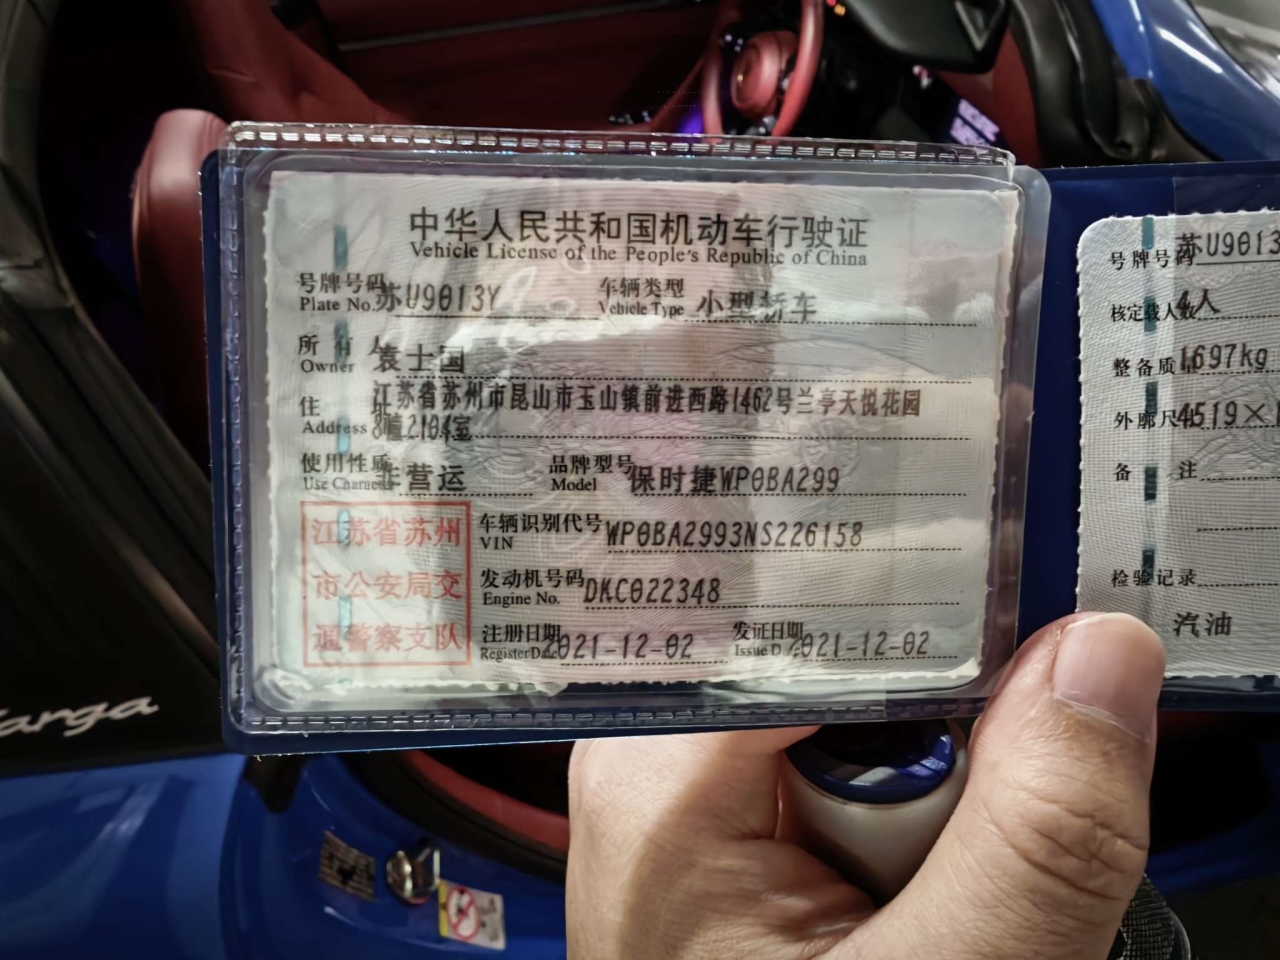 中华人民共和国机动车行驶证
Vehicle License of the People's Republic of China
号牌号码 苏U9013Y 车辆类型 小型轿车
Plate No. Vehicle Type
所有人 袁士国
Owner
住址 江苏省苏州市昆山市玉山镇前进西路1462号兰亭天悦花园
Address 8幢2104室
使用性质 非营运 品牌型号 保时捷WP0BA299
Use Character Model
江苏省苏州
市公安局交
通警察支队
车辆识别代号 WP0BA2993NS226158
VIN
发动机号码 DKC022348
Engine No.
注册日期 2021-12-02 发证日期 2021-12-02
Register Date Issue Date
号牌号码 苏U9013
核定载人数 4人
整备质 1697kg
外廓尺 4519×
备注
检验记录
汽油
arga